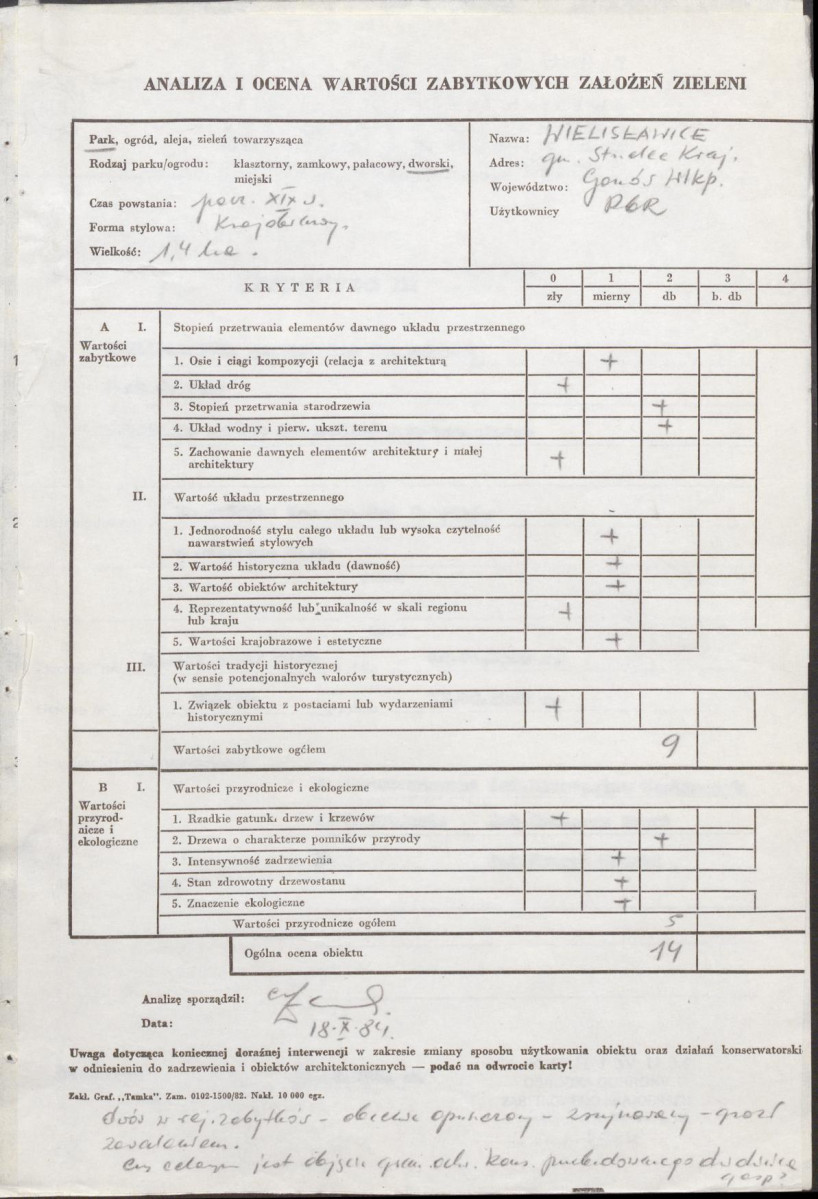 ANALIZA I OCENA WARTOŚCI ZABYTKOWYCH ZAŁOŻEŃ ZIELENI
Park, ogród, aleja, zieleń towarzysząca
Rodzaj parku/ogrodu: klasztorny, zamkowy, pałacowy, dworski,
miejski
Czas powstania: pocz. XIX w.
Forma stylowa: Krajobrazowy.
Wielkość: 1,4 ha.
Nazwa: WIELISŁAWICE
Adres: gm. Strzelce Kraj.
Województwo: Gorzów Wlkp.
Użytkownicy PGR
KRYTERIA
0 1 2 3 4
zły mierny db b. db
A I. Stopień przetrwania elementów dawnego układu przestrzennego
Wartości
zabytkowe
1. Osie i ciągi kompozycji (relacja z architekturą +
2. Układ dróg +
3. Stopień przetrwania starodrzewia +
4. Układ wodny i pierw. ukszt. terenu +
5. Zachowanie dawnych elementów architektury i małej
architektury +
II. Wartość układu przestrzennego
1. Jednorodność stylu całego układu lub wysoka czytelność
nawarstwień stylowych +
2. Wartość historyczna układu (dawność) +
3. Wartość obiektów architektury +
4. Reprezentatywność lub unikalność w skali regionu
lub kraju +
5. Wartości krajobrazowe i estetyczne +
III. Wartości tradycji historycznej
(w sensie potencjonalnych walorów turystycznych)
1. Związek obiektu z postaciami lub wydarzeniami
historycznymi +
Wartości zabytkowe ogółem 9
B I. Wartości przyrodnicze i ekologiczne
Wartości
przyrod-
nicze i
ekologiczne
1. Rzadkie gatunki drzew i krzewów +
2. Drzewa o charakterze pomników przyrody +
3. Intensywność zadrzewienia +
4. Stan zdrowotny drzewostanu +
5. Znaczenie ekologiczne +
Wartości przyrodnicze ogółem 5
Ogólna ocena obiektu 14
Analizę sporządził:
Data: 18.X.84.
Uwaga dotycząca koniecznej doraźnej interwencji w zakresie zmiany sposobu użytkowania obiektu oraz działań konserwatorski
w odniesieniu do zadrzewienia i obiektów architektonicznych — podać na odwrocie karty!
Zakł. Graf. „Tamka". Zam. 0102-1500/82. Nakł. 10 000 egz.
dwór w rej. zabytków - obecnie opuszczony - zrujnowany - grozi
zawaleniem.
Czy celowym jest objęcie ochr. kons. przebudowanego dziedzińca
gosp?